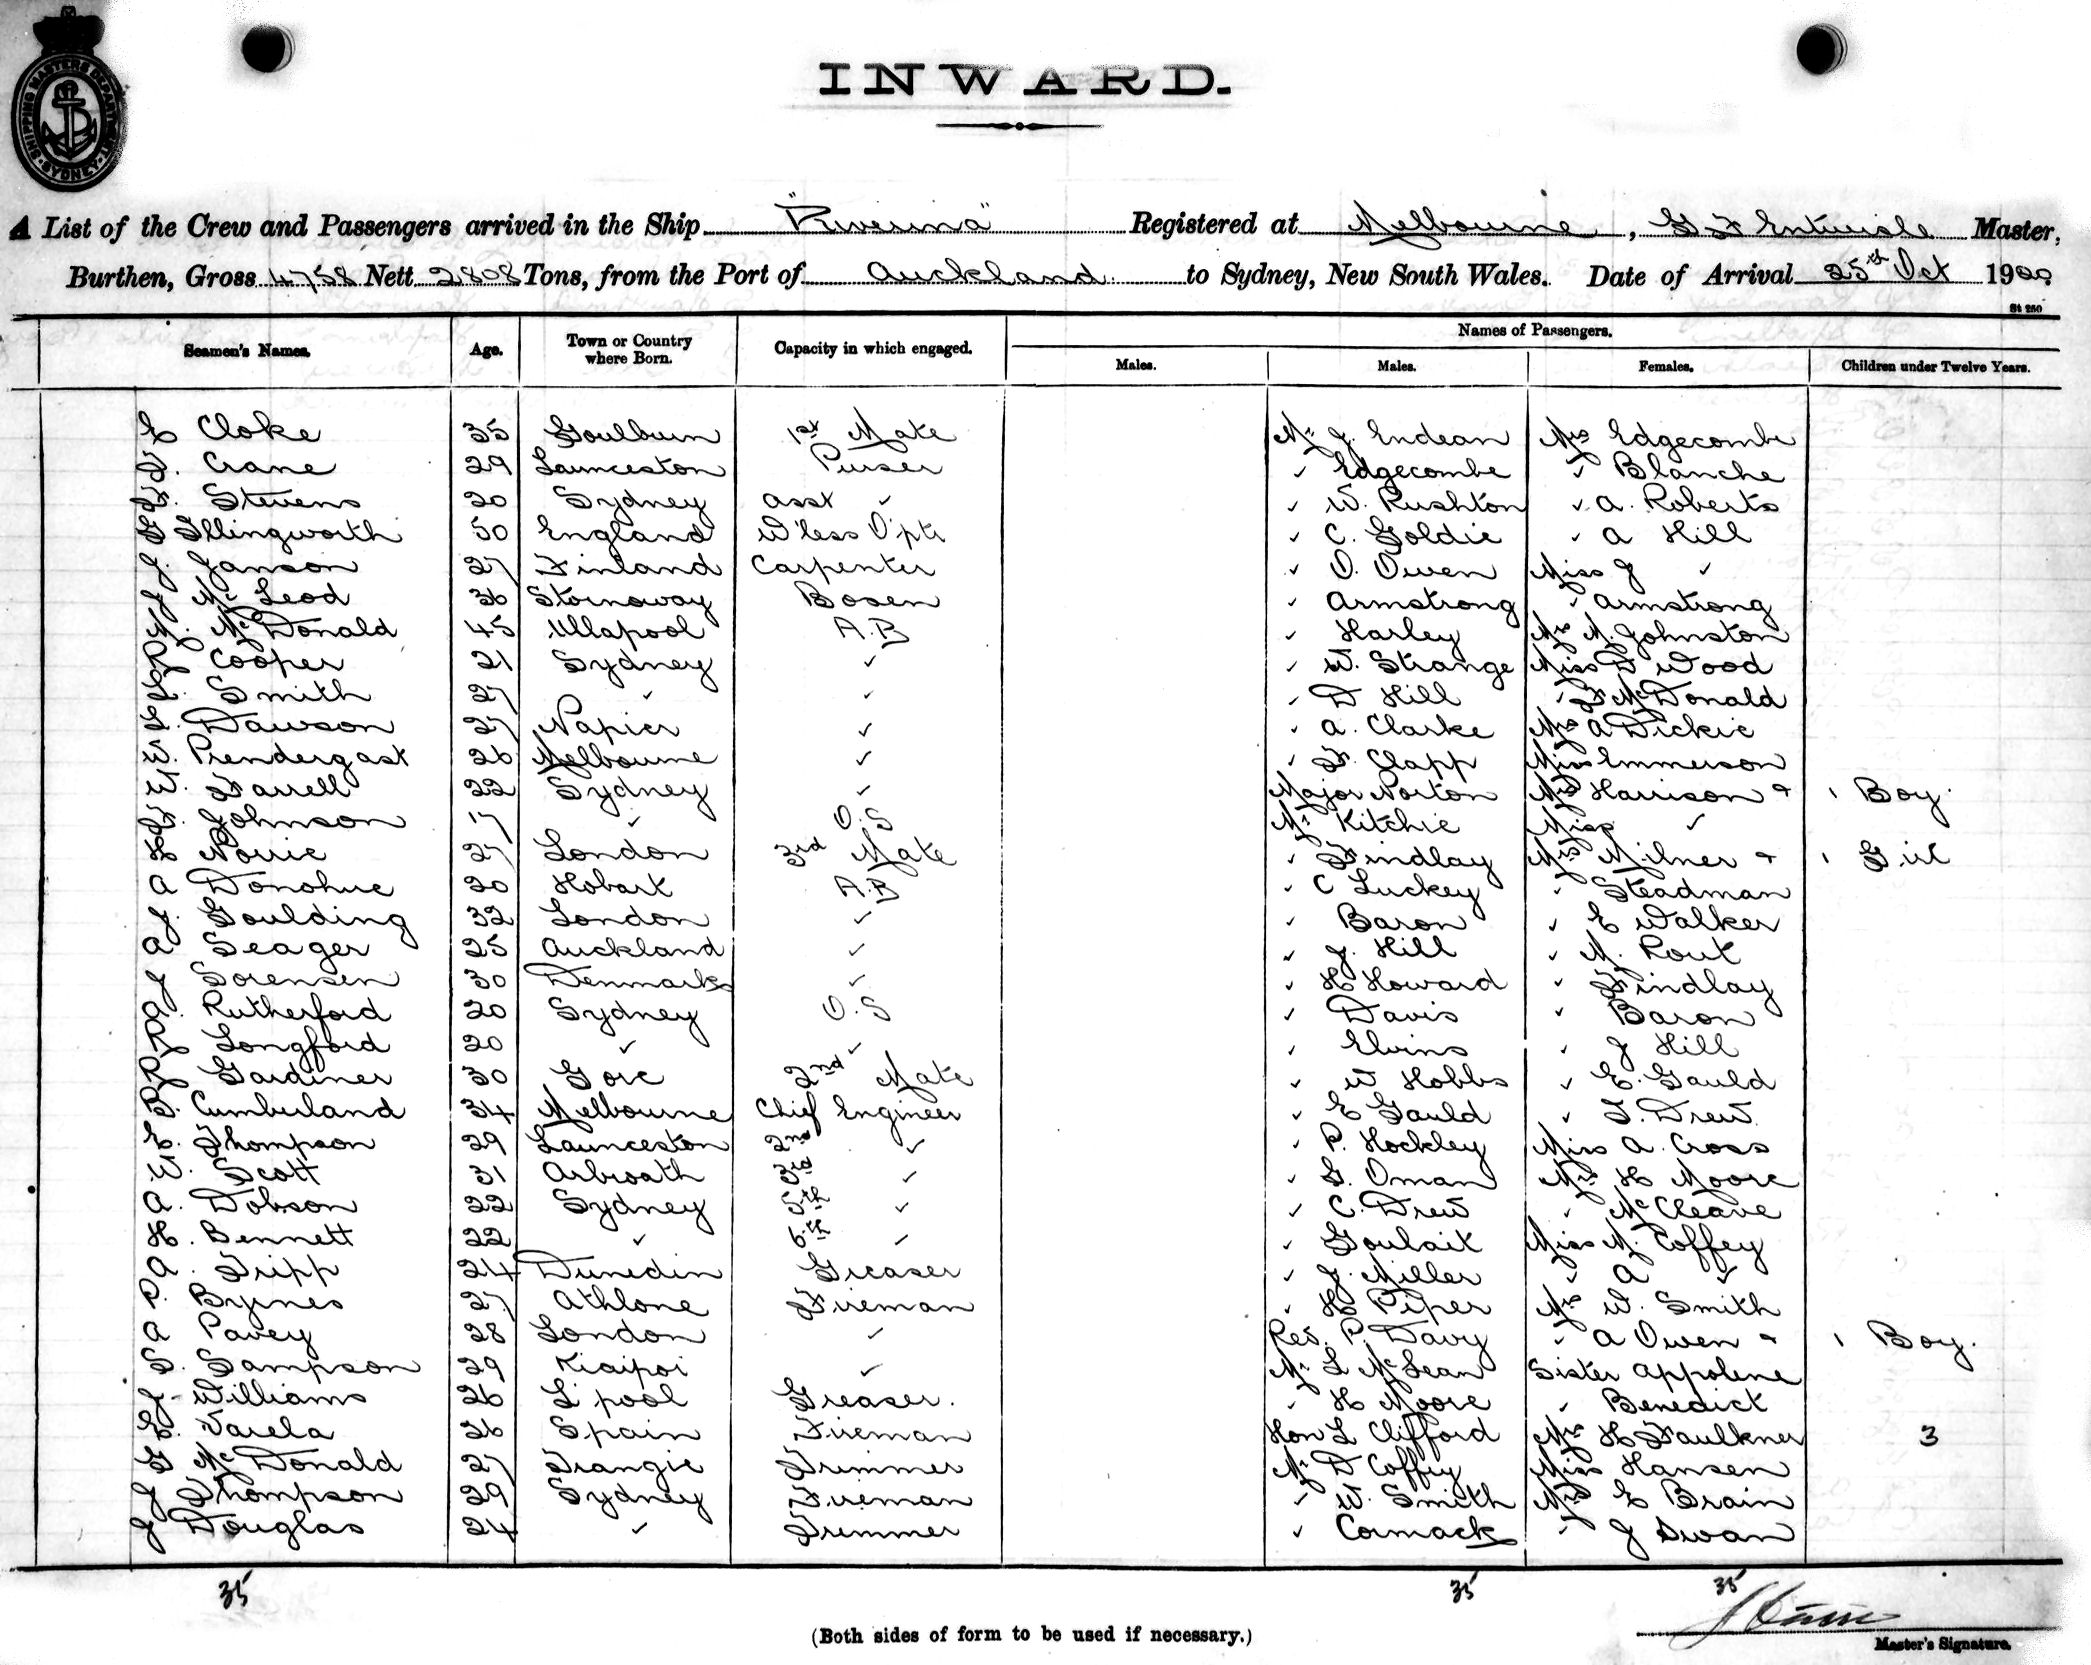 SHIPPING MASTERS DEPARTMENT
SYDNEY
INWARD.
A List of the Crew and Passengers arrived in the Ship "Riverina" Registered at Melbourne, G F Entwisle Master,
Burthen, Gross 4758 Nett 2808 Tons, from the Port of Auckland to Sydney, New South Wales. Date of Arrival 25th Oct 1920
St 250
Names of Passengers.
Seamen's Names. Age. Town or Country where Born. Capacity in which engaged. Males. Males. Females. Children under Twelve Years.
E Cloke 35 Goulburn 1st Mate Mr J. Endean Mrs Edgecombe
Crane 29 Launceston Purser " Edgecombe " Blanche
F. Stevens 20 Sydney Asst " " W. Rushton " A. Roberts
G Illingworth 50 England W'less Op'tr " C. Goldie " A Hill
J. Janson 27 Finland Carpenter " O. Owen Miss J "
J McLeod 36 Stornoway Bosen " Armstrong " Armstrong
M. McDonald 45 Ullapool A.B " Harley Mrs M. Johnston
R Cooper 21 Sydney " " W. Strange Miss F Wood
L. Smith 27 " " " D Hill " F McDonald
L. Dawson 27 Napier " " A. Clarke Mrs A Dickie
W. Prendergast 26 Melbourne " " F. Clapp Miss Emmerson
W. Farrell 22 Sydney " Major Norton Mrs Harrison & 1 Boy.
F. Johnson 17 " O.S Mr Kitchie Miss "
H Norrie 27 London 3rd Mate " Findlay Mrs Milner & 1 Girl
A Donohue 20 Hobart A.B " C Luckey " Steadman
J. Goulding 32 London " " Baron " E Walker
A Seager 25 Auckland " " J. Hill " M. Rout
J Sorensen 30 Denmark " " H Howard " Findlay
A. Rutherford 20 Sydney O.S " Davis " Baron
R Longford 20 " " " Elvins " J Hill
R Gardiner 30 Gore 2nd Mate " W Hobbs " E. Gauld
B. Cumberland 34 Melbourne Chief Engineer " E Gauld " T. Drew
E. Thompson 29 Launceston 2nd " " P. Hockley Miss A. Cross
W. Scott 31 Arbroath 3rd " " G. Oman Mrs H Moore
A. Dobson 22 Sydney 5th " " C. Drew " McCleave
H. Bennett 22 " 6th " " Goulait Miss M. Coffey
A. Tripp 24 Dunedin Greaser " J. Miller " A "
P. Byrnes 27 Athlone Fireman " H Piper Mrs W. Smith
A Pavey 28 London " Rev. P. Davy " A Owen & 1 Boy.
S. Sampson 29 Kiaipoi " Mr L McLean Sister Appolene
J. Williams 26 L'pool Greaser. " H Moore " Benedict
E. Varela 36 Spain Fireman Hon L Clifford Mrs H Faulkner 3
G McDonald 27 Trangie Trimmer Mr D Coffey Miss Hansen
J Thompson 29 Sydney Fireman " W. Smith Mrs E Brain
J Douglas 24 " Trimmer " Cormack " J Swan
35 35 35
(Both sides of form to be used if necessary.)
Master's Signature.